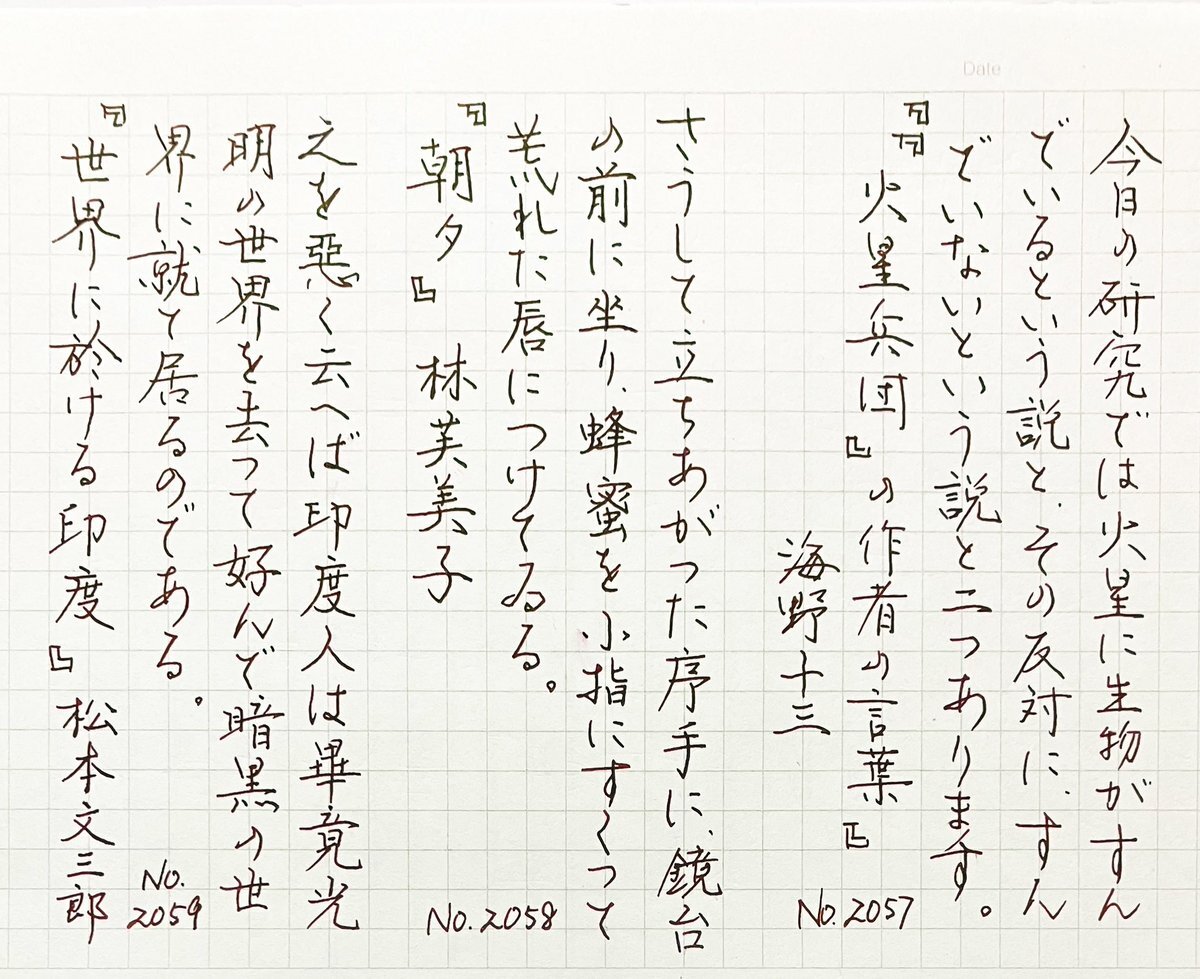 Date
今日の研究では火星に生物がすん
でいるという説と、その反対に、すん
でいないという説と二つあります。
『『火星兵団』の作者の言葉』
海野十三
No.2057
さうして立ちあがつた序手に、鏡台
の前に坐り、蜂蜜を小指にすくつて
荒れた唇につけてゐる。
『朝夕』 林芙美子
No.2058
之を惡く云へば印度人は畢竟光
明の世界を去つて好んで暗黒の世
界に就て居るのである。
No.
2059
『世界に於ける印度』松本文三郎